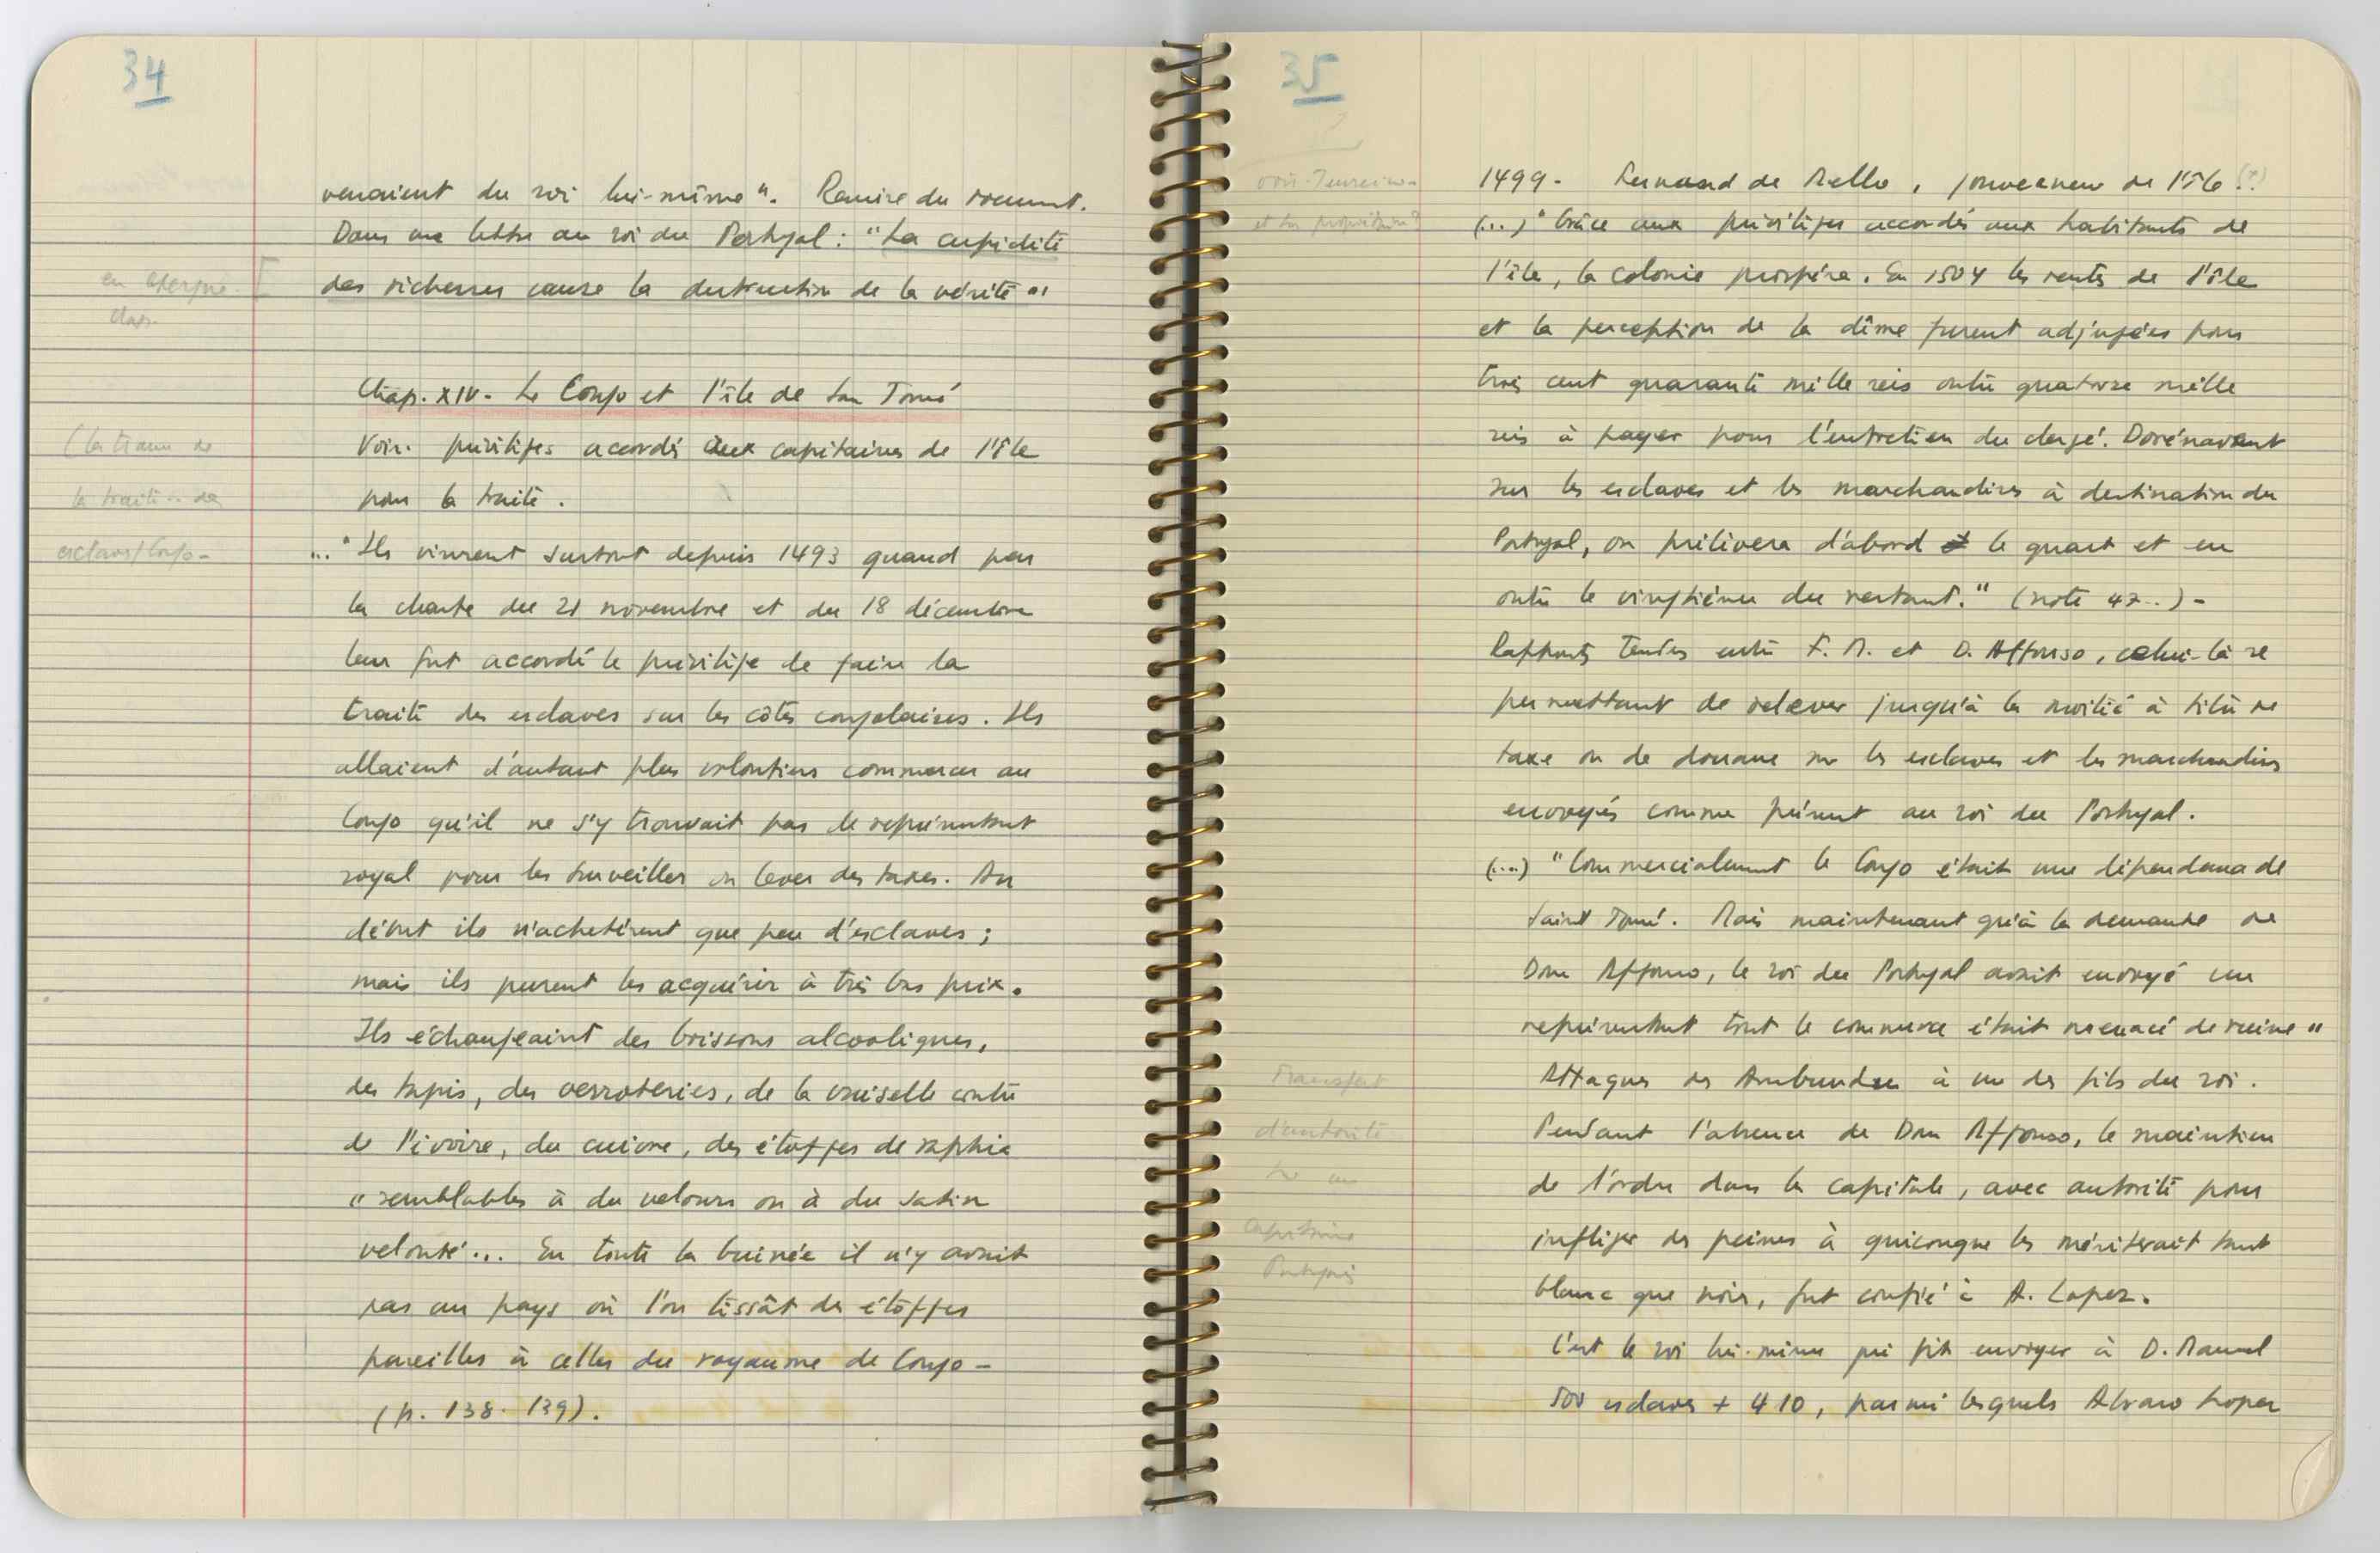 34
venaient du roi lui-même". Remise du document.
Dans une lettre au roi du Portugal : "La cupidité
des richesses cause la destruction de la vérité"
en exergue
Chap. XIV - Le Congo et l'île de San Tomé
Voir. privilèges accordés aux capitaines de l'île
pour la traite.
(la trame de
la traite .. des
esclaves/Congo-
..." Ils vinrent surtout depuis 1493 quand par
la charte du 21 novembre et du 18 décembre
leur fut accordé le privilège de faire la
traite des esclaves sur les côtes congolaises. Ils
allaient d'autant plus volontiers commercer au
Congo qu'il ne s'y trouvait pas de représentant
royal pour les surveiller ou lever des taxes. Au
début ils n'achetèrent que peu d'esclaves ;
mais ils purent les acquérir à très bas prix.
Ils échangeaient des boissons alcooliques,
des tapis, des verroteries, de la vaiselle contre
de l'ivoire, du cuivre, des étoffes de raphia
"semblables à du velours ou à du satin
velouté... En toute la Guinée il n'y avait
pas un pays où l'on tissât des étoffes
pareilles à celles du royaume de Congo -
(p. 138. 139).
35
1499 - Fernand de Mello, gouverneur de l'île
(...) "Grâce aux privilèges accordés aux habitants de
l'île, la colonie prospéra. En 1504 les rentes de l'île
et la perception de la dîme furent adjugées pour
trois cent quarante mille reis outre quatorze mille
reis à payer pour l'entretien du clergé. Dorénavant
sur les esclaves et les marchandises à destination du
Portugal, on prélèvera d'abord le quart et en
outre le vingtième du restant." (note 47..) -
Rapports tendus entre F. M. et D. Affonso, celui-là se
permettant de relever jusqu'à la moitié à titre de
taxe ou de douane sur les esclaves et les marchandises
envoyés comme présent au roi du Portugal.
(...) "Commercialement le Congo était une dépendance de
Saint Tomé. Mais maintenant qu'à la demande de
Dom Affonso, le roi du Portugal avait envoyé un
représentant tout le commerce était menacé de ruine"
Attaques des Ambundu à un des fils du roi.
Pendant l'absence de Dom Affonso, le maintien
de l'ordre dans la capitale, avec autorité pour
infliger des peines à quiconque les mériterait tant
blanc que noir, fut confié à A. Lopez.
Transfert
d'autorité
à un
capitaine
Portugais
C'est le roi lui-même qui fit envoyer à D. Manuel
500 esclaves + 410, parmi lesquels Alvaro Lopez